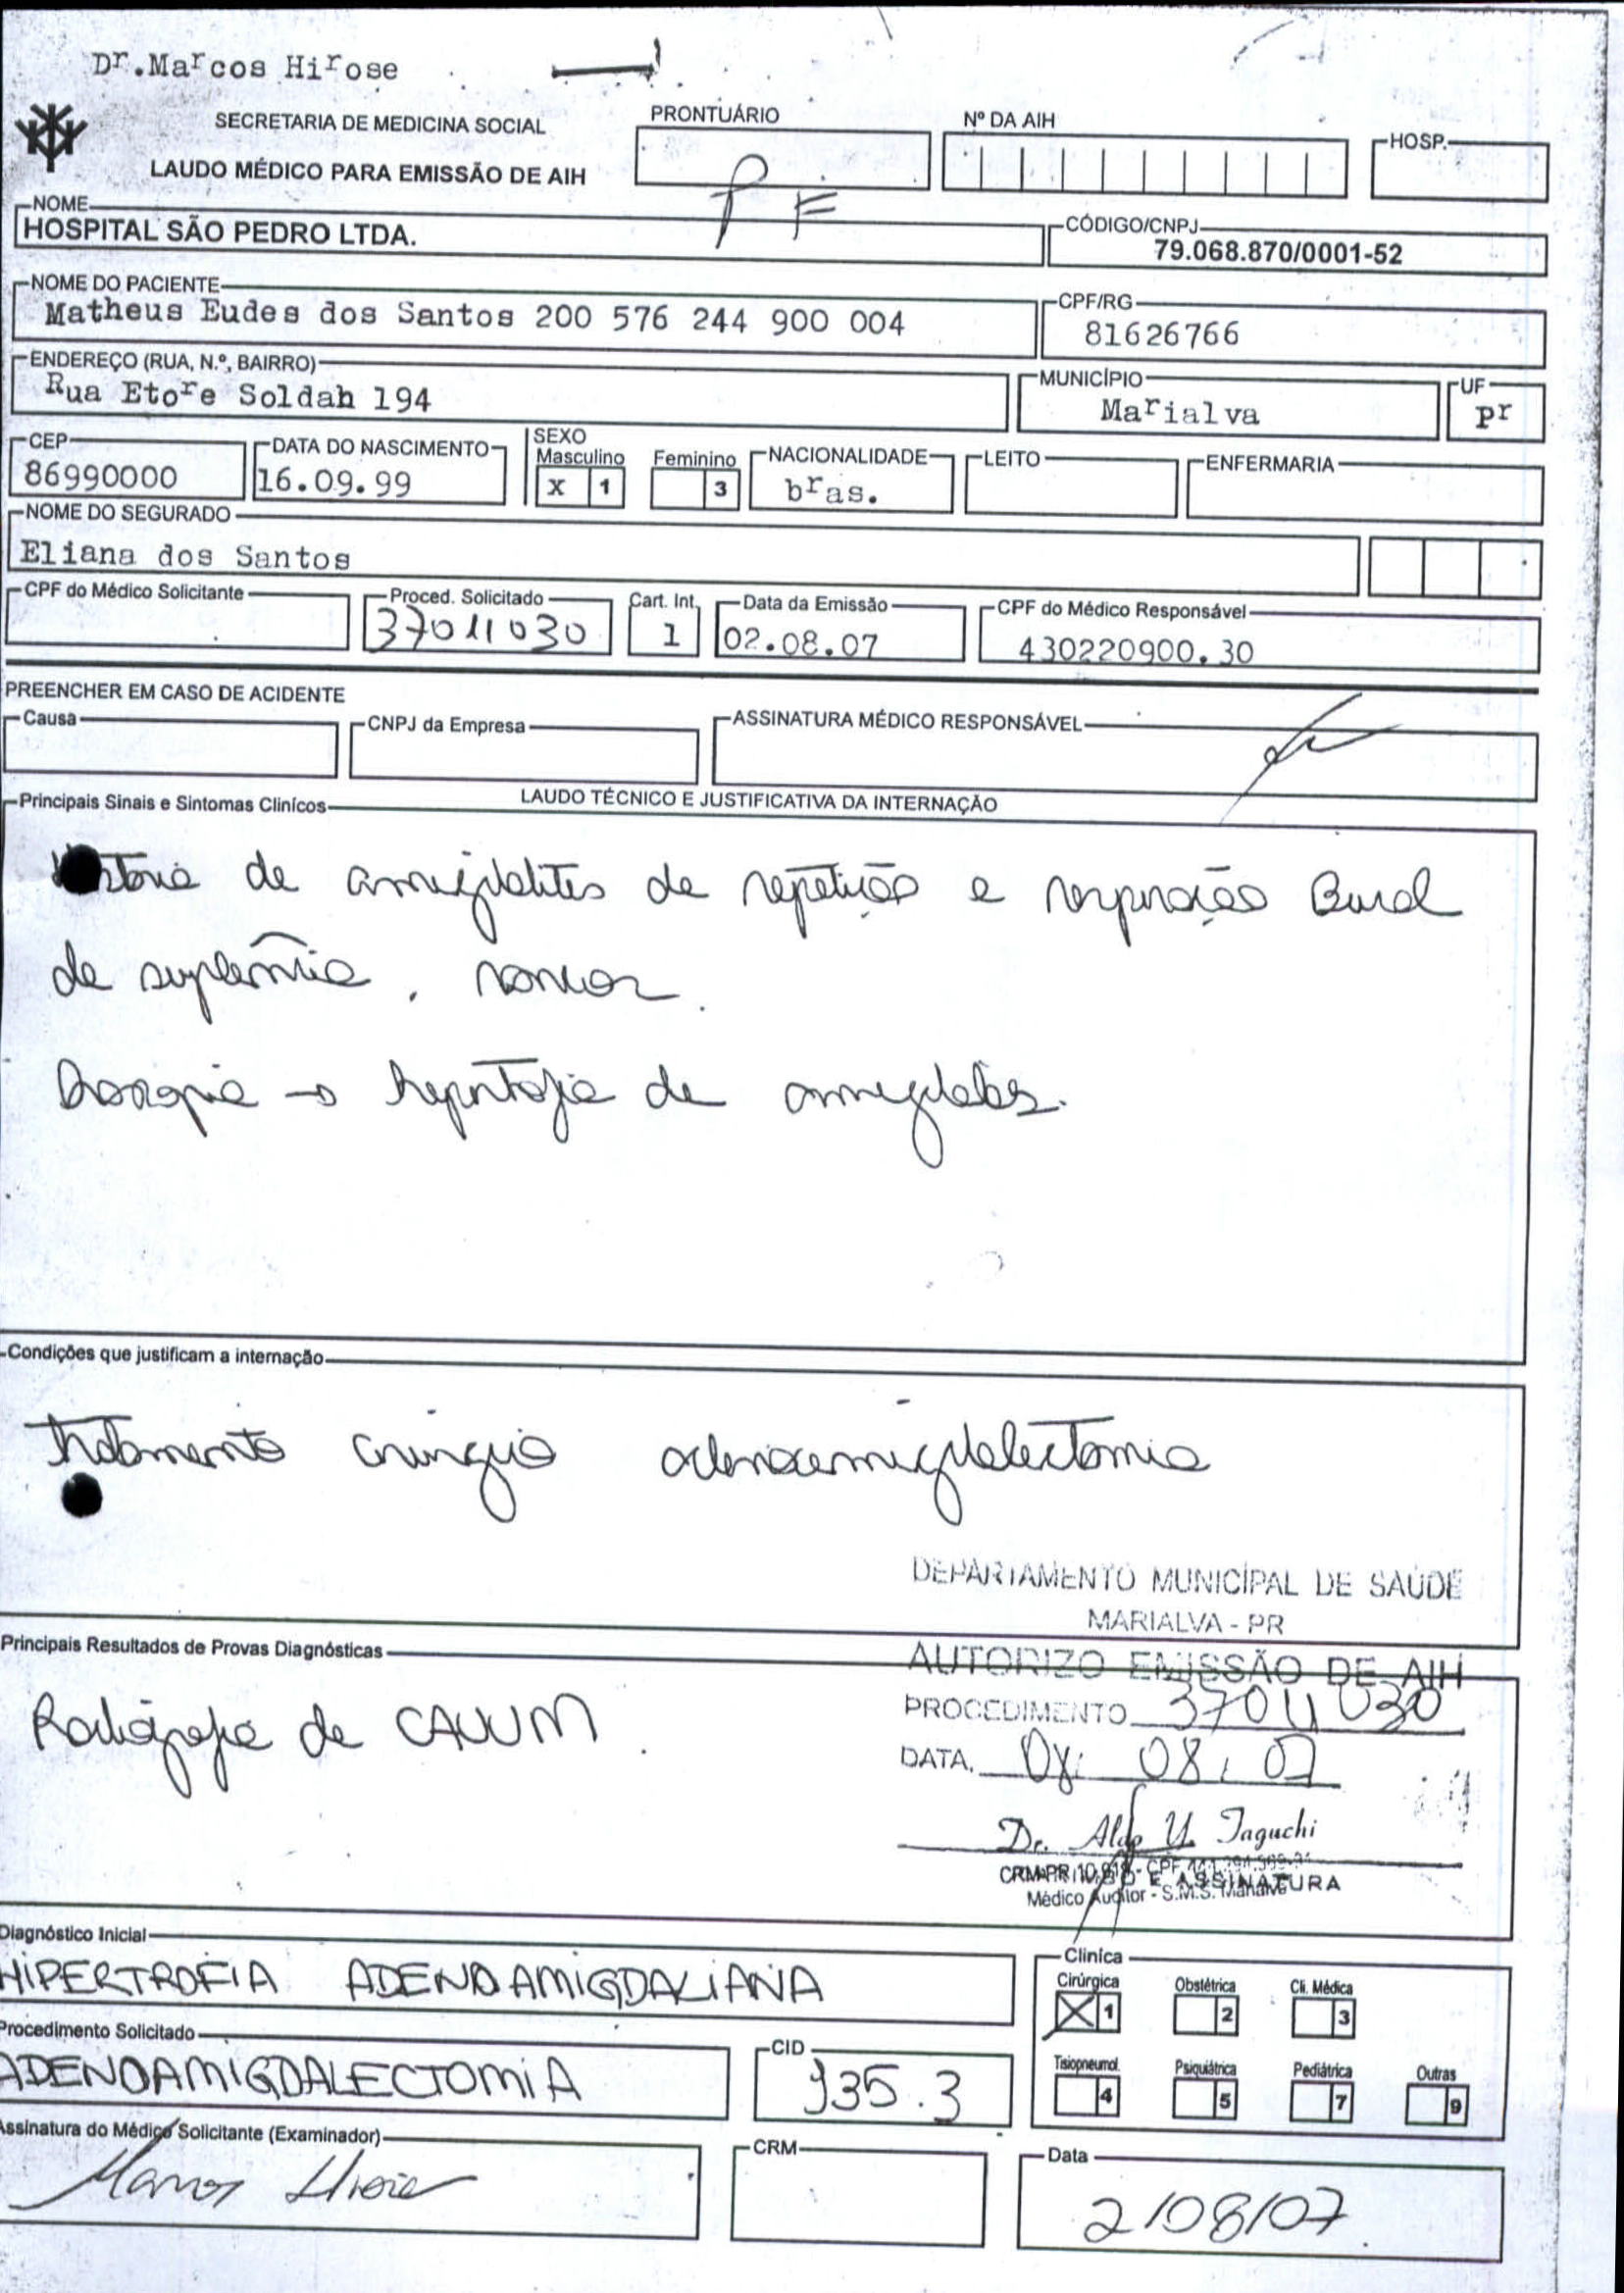 Dr.Marcos Hirose
SECRETARIA DE MEDICINA SOCIAL
LAUDO MÉDICO PARA EMISSÃO DE AIH
PRONTUÁRIO
Nº DA AIH
HOSP.
P F
NOME
HOSPITAL SÃO PEDRO LTDA.
CÓDIGO/CNPJ
79.068.870/0001-52
NOME DO PACIENTE
Matheus Eudes dos Santos 200 576 244 900 004
CPF/RG
81626766
ENDEREÇO (RUA, N.º, BAIRRO)
Rua Etore Soldah 194
MUNICÍPIO
Marialva
UF
pr
CEP
86990000
DATA DO NASCIMENTO
16.09.99
SEXO
Masculino
X 1
Feminino
3
NACIONALIDADE
bras.
LEITO
ENFERMARIA
NOME DO SEGURADO
Eliana dos Santos
CPF do Médico Solicitante
Proced. Solicitado
37011030
Cart. Int.
1
Data da Emissão
02.08.07
CPF do Médico Responsável
430220900.30
PREENCHER EM CASO DE ACIDENTE
Causa
CNPJ da Empresa
ASSINATURA MÉDICO RESPONSÁVEL
Principais Sinais e Sintomas Clinícos
LAUDO TÉCNICO E JUSTIFICATIVA DA INTERNAÇÃO
de amigdalites de repetição e respiração Bucal
de suplência, roncos.
hipertrofia de amigdalas.
Condições que justificam a internação
Tratamento cirurgico adenoamigdalectomia
DEPARTAMENTO MUNICÍPAL DE SAÚDE
MARIALVA - PR
Principais Resultados de Provas Diagnósticas
AUTORIZO EMISSÃO DE AIH
Radiografia de CAVUM.
PROCEDIMENTO 37011030
DATA. 08/08/07
Dr. Aldo U. Taguchi
CRM-PR - CPF
E ASSINATURA
Médico Auditor - S.M.S. Marialva
Diagnóstico Inicial
HIPERTROFIA ADENOAMIGDALIANA
Cliníca
Cirúrgica
X 1
Obstétrica
2
Cli. Médica
3
Procedimento Solicitado
ADENOAMIGDALECTOMIA
CID
J35.3
Tisiopneumol.
4
Psiquiátrica
5
Pediátrica
7
Outras
9
Assinatura do Médico Solicitante (Examinador)
Marcos Hirose
CRM
Data
2/08/07